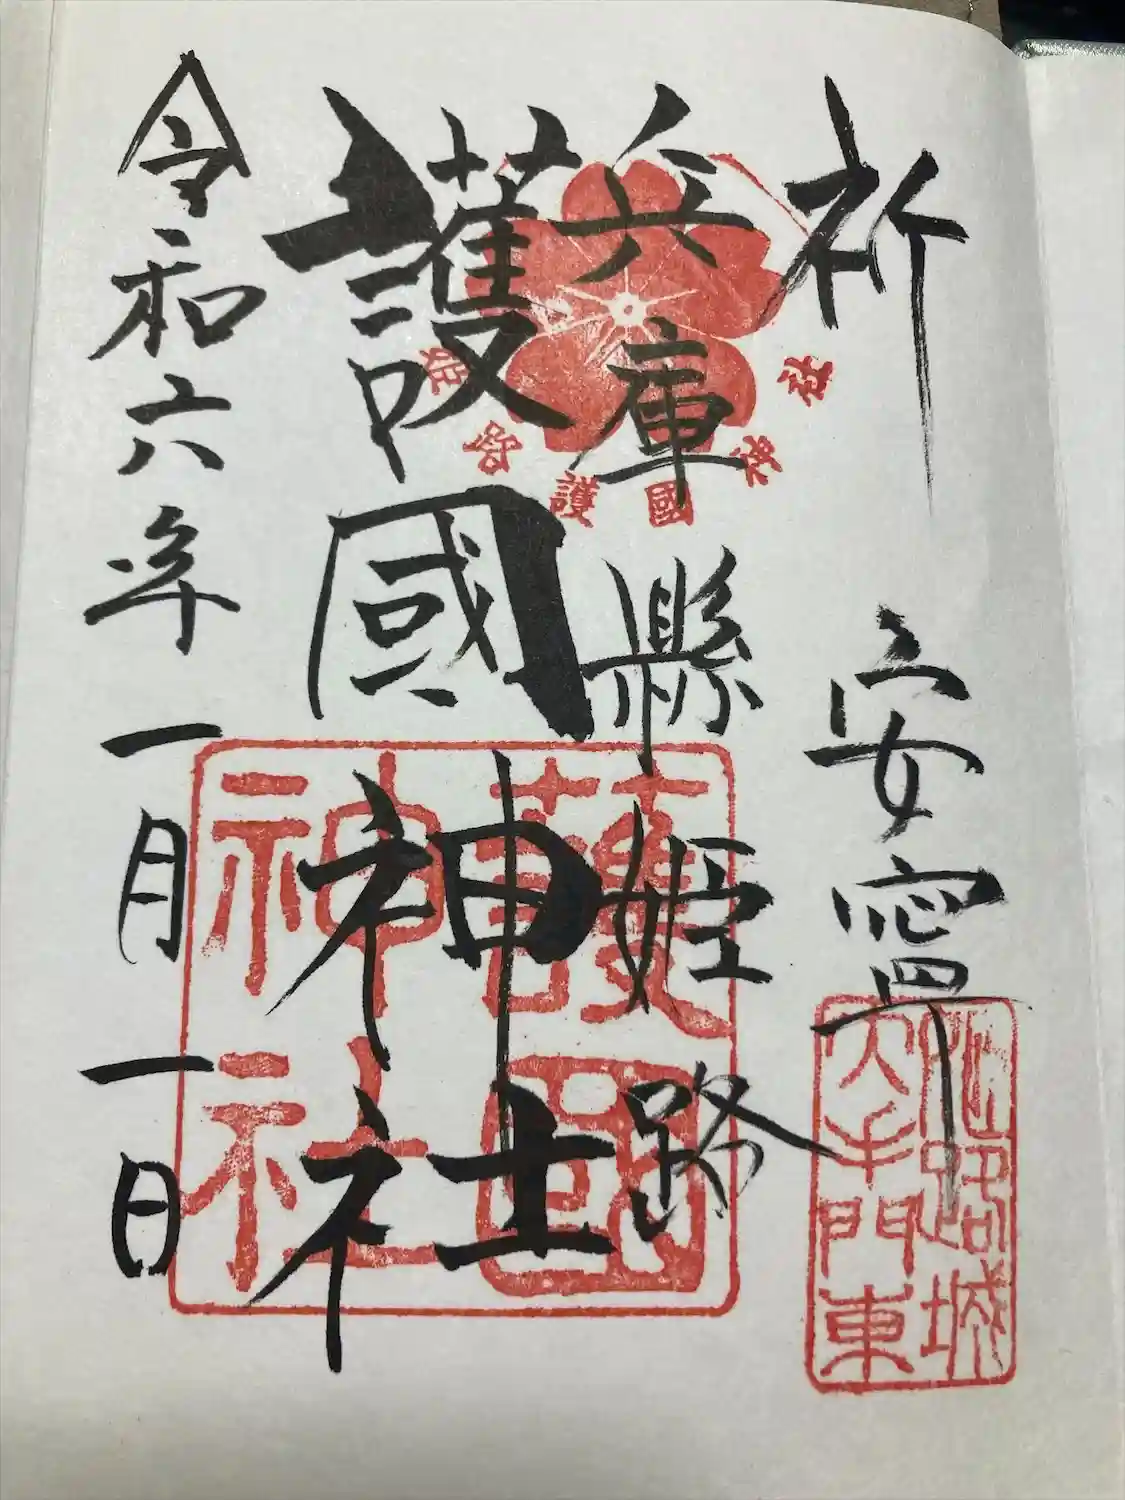 祈 安寧
兵庫縣姫路
護國神社
令和六年一月一日
姫路護國神社
護國神社
姫路城
大手門東